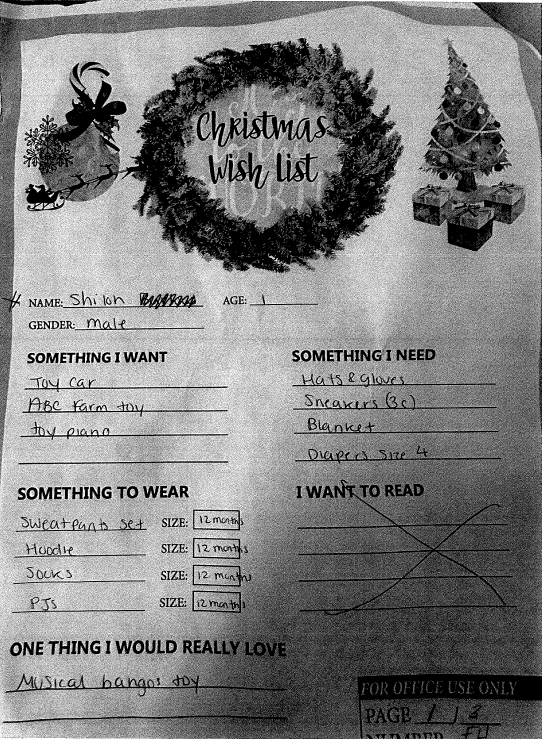 Christmas
Wish list
NAME: Shiloh AGE: 1
GENDER: male
SOMETHING I WANT
Toy car
ABC Farm toy
toy piano
SOMETHING I NEED
Hats & Gloves
Sneakers (3c)
Blanket
Diapers Size 4
SOMETHING TO WEAR
Sweatpants set SIZE: 12 months
Hoodie SIZE: 12 months
Socks SIZE: 12 months
PJs SIZE: 12 months
I WANT TO READ
ONE THING I WOULD REALLY LOVE
Musical bangos toy
FOR OFFICE USE ONLY
PAGE 1 / 3
NUMBER